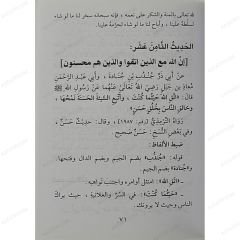 لله تعالى بالمنة والشكر على نعمه ، فإنه سبحانه سخر لنا ما لو شاء
لسلطه علينا ، وأباح لنا ما لو شاء لحرمه علينا .
الحَدِيثُ الثَّامِنَ عَشَرَ:
[إن الله مع الذين اتقوا والذين هم محسنون]
عن أبي ذَرٍّ جُنْدُبِ بْنِ جُنَادَةَ ، وأبي عبد الرَّحْمَنِ
مُعَاذِ بنِ جَبَلٍ رضي الله تعالى عنهما عن رسولِ الله ﷺ
قال : «اتَّقِ الله حَيْثُمَا كُنْتَ ، وأَتْبِعِ السَّيِّئَةَ الحَسَنَةَ تَمْحُهَا ،
وخالِقِ النَّاسَ بِخُلُقٍ حَسَنٍ»
رَوَاهُ التِّرْمِذِيُّ [رقم: ١٩٨٧] ، وقال : حديثٌ حَسَنٌ ،
وفي بَعْضِ النُّسَخِ : حَسَنٌ صَحيح
* «جُنْدُب» بضم الجيم وبضم الدال وفتحها.
و«جُنَادَة» بضم الجيم.
* «اتَّقِ الله»: امتثل أوامره واجتنب نواهيه.
* «حَيْثُمَا كُنْتَ»: في السِّرِّ والعلانية ، حيث يراك
الناس وحيث لا يرونك.
٧١